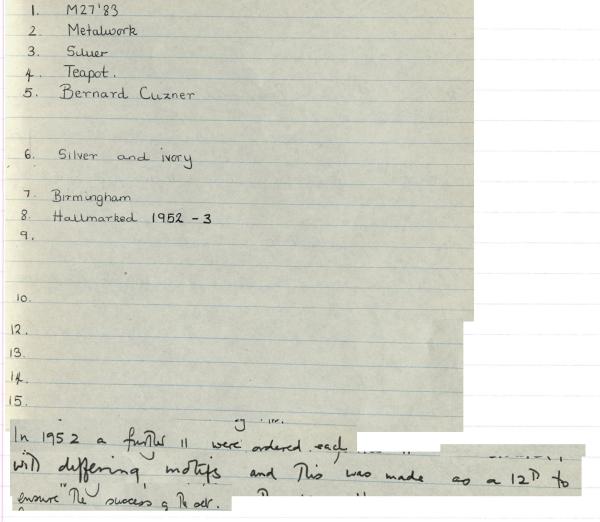 1. M27'83
2. Metalwork
3. Silver
4. Teapot.
5. Bernard Cuzner
6. Silver and ivory
7. Birmingham
8. Hallmarked 1952-3
9.
10.
12.
13.
14.
15.
In 1952 a further 11 were ordered each
with differing motifs and this was made as a 12th to
ensure "the success of the set.